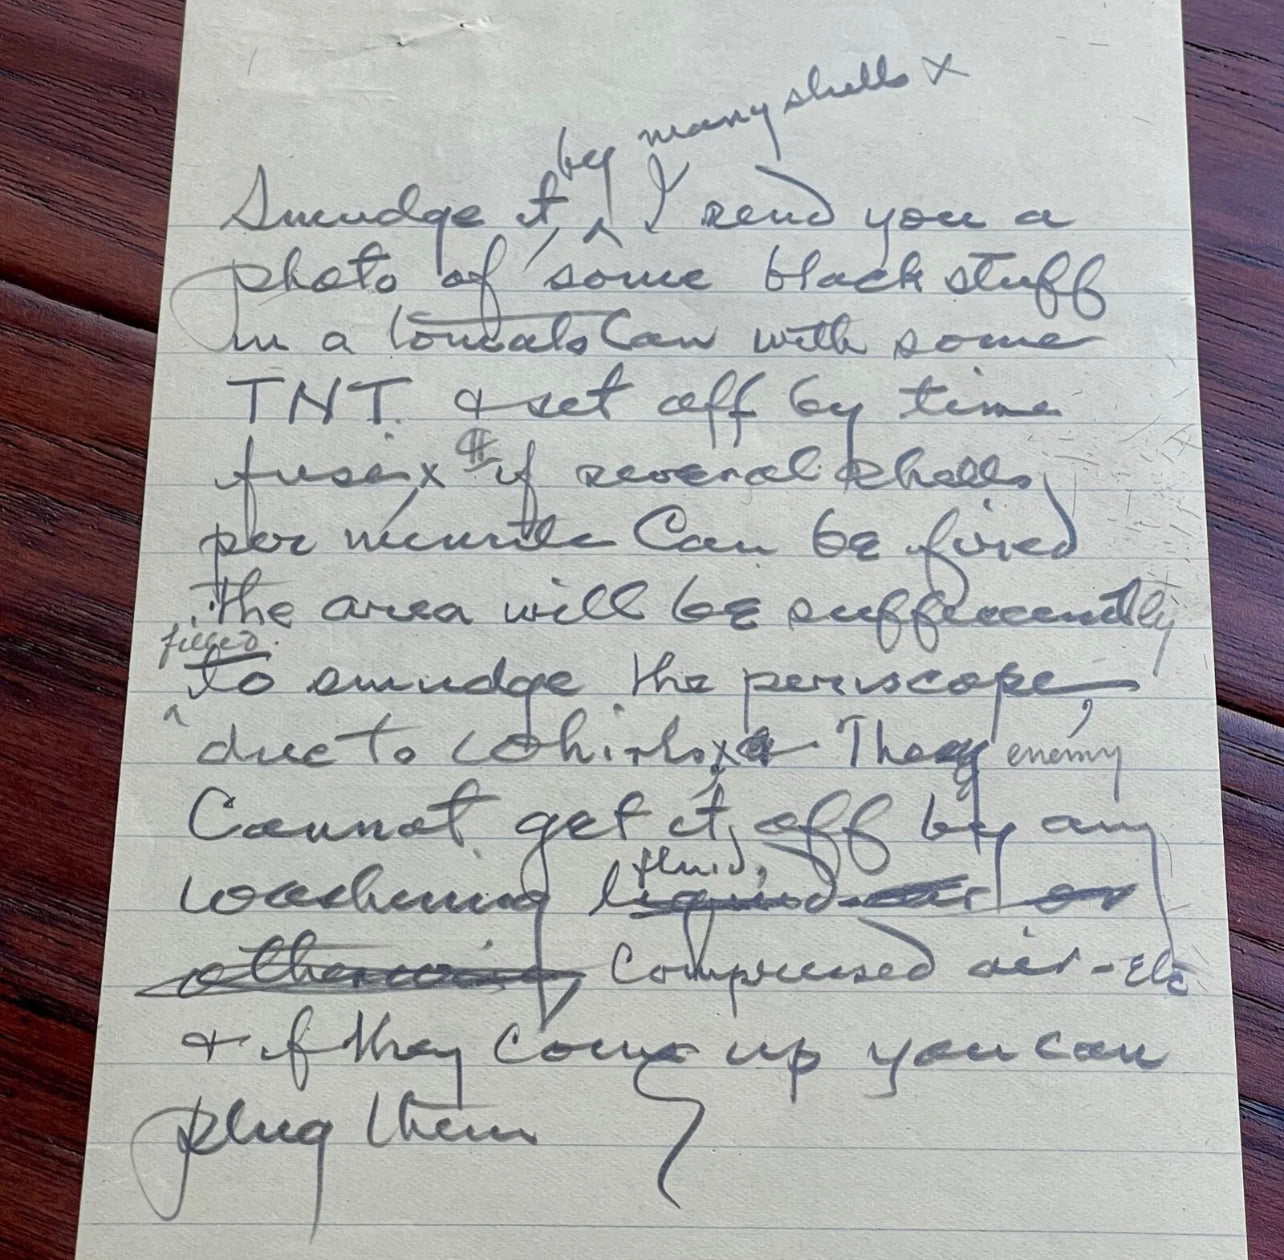 by many shells x
Smudge it, ^ I send you a
photo of some black stuff
in a tomato Can with some
TNT. & set off by time
fuse x if several shells
per minute Can be fired
the area will be sufficiently
filled
^ to smudge the periscope,
due to whirls x The enemy
Cannot get it off by any
fluid,
washening liquid air or
otherwise Compressed air - etc
& if they come up you can
plug them